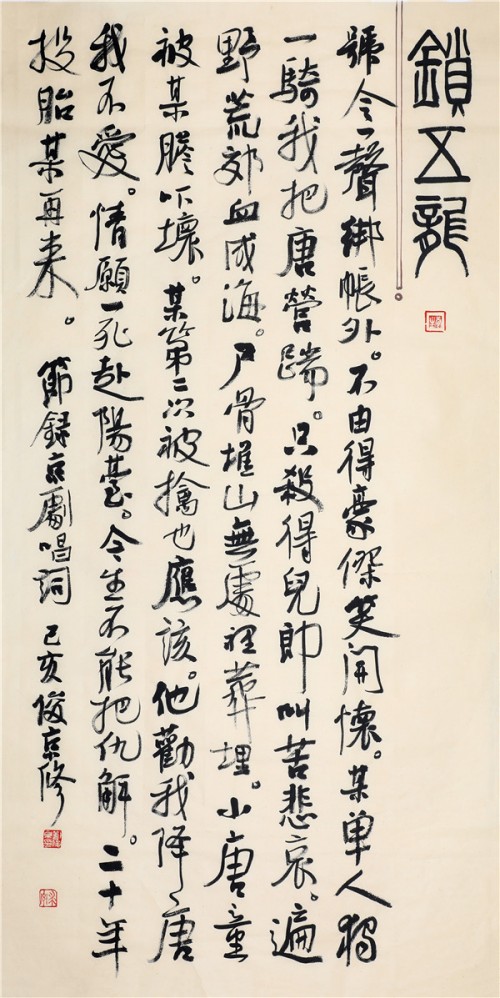 鎖五龍
號令一聲綁帳外。不由得豪傑笑開懷。某单人獨
一騎我把唐營踹。只殺得兒郎叫苦悲哀。遍
野荒郊血成海。尸骨堆山無處裡葬埋。小唐童
被某膽吓壞。某第二次被擒也應該。他勸我降唐
我不愛。情願一死赴陽臺。今生不能把仇解。二十年
投胎某再来。節録京劇唱詞 己亥俊京修